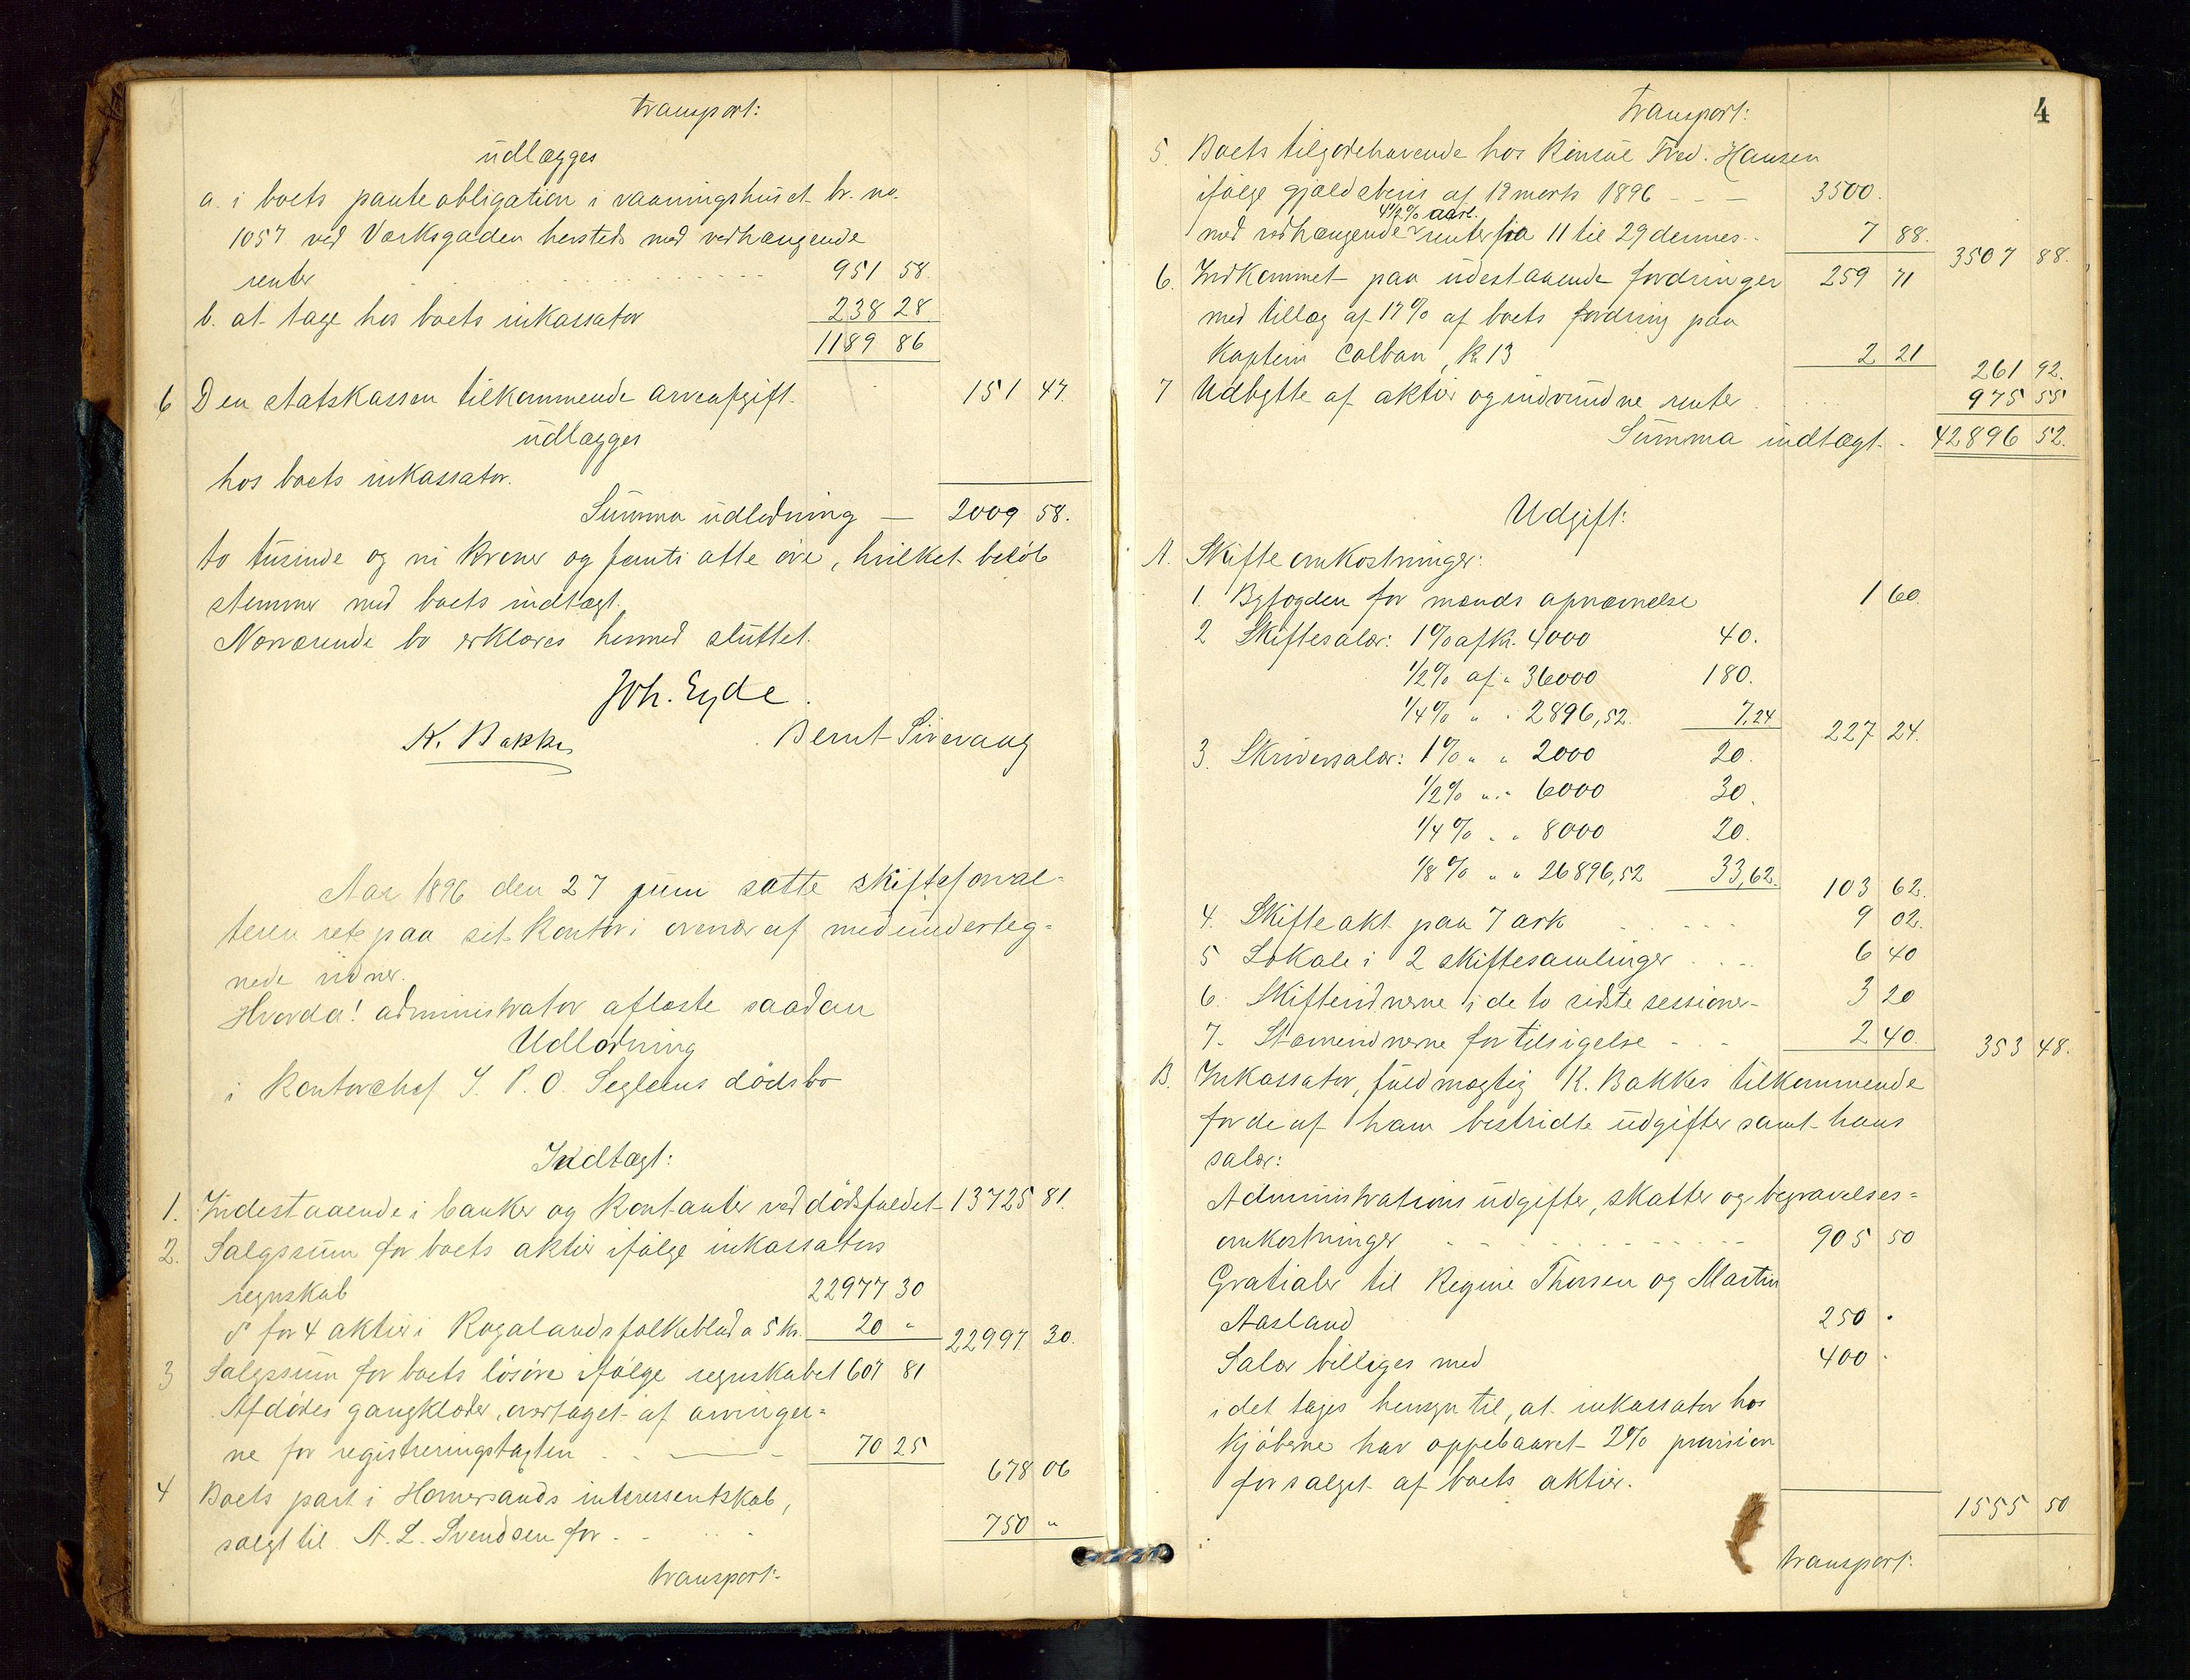 transport:
udlægges
a. i boets panteobligation i vaaningshuset br. no.
1057 ved Værksgaden hersteds med vedhængende
renter 951 58.
b. at tage hos boets inkassator 238 28.
1189 86
6 Den statskassen tilkommende arveafgift 151 47.
udlægges
hos boets inkassator.
Summa udlodning — 2009 58.
to tusinde og ni kroner og femti otte øre, hvilket beløb
stemmer med boets indtægt.
Nærværende bo erklæres hermed sluttet.
Joh. Eyde.
K. Bakke Bernt Sirevaag
Aar 1896 den 27 juni satte skifteforval-
teren ret paa sit kontor i overvær af medunderteg-
nede vidner.
Hvorda! administrator afløste saadan
Udlodning
i Kontorchef S. P. O. Segleus dødsbo
Indtægt:
1. Indestaaende i banker og kontanter ved dødsfaldet 13725 81.
2. Salgssum for boets aktier ifølge inkassators
regnskab 22977 30
do for 4 aktier i Rogalands folkeblad a 5 kr. 20 " 22997 30.
3 Salgssum for boets løsøre ifølge regnskabet 607 81
Afdødes gangklæder, overtaget af arvinger=
ne for registreringstaxten 70 25
678 06
4 Boets part i Homersands interessentskab,
solgt til A. L. Svendsen for 750 "
transport:
4
transport:
5. Boets tilgodehavende hos Konsul Fred. Hansen
ifølge gjældsbevis af 12 marts 1896 3500.
4½% aarl.
med vedhængende renter fra 11 til 29 dennes 7 88.
3507 88.
6. Indkommet paa udestaaende fordringer 259 71
med tillæg af 17% af boets fordring paa
Kaptein Colban, kr 13 2 21
261 92.
7 Udbytte af aktier og indvundne renter 975 55
Summa indtægt 42896 52.
Udgift:
A. Skifteomkostninger:
1. Byfogden for mænds opnævnelse 1 60.
2 Skiftesalær: 1% af kr. 4000 40.
1/2% af " 36000 180.
1/4% " " 2896,52. 7,24
227 24.
3. Skriversalær: 1% " " 2000 20.
1/2% " " 6000 30.
1/4% " " 8000 20.
1/8% " " 26896,52 33,62.
103 62.
4. Skifteakt paa 7 ark 9 02.
5 Lokale i 2 skiftesamlinger 6 40
6. Skiftevidnerne i de to sidste sessioner 3 20
7. Stævnevidnerne for tilsigelse 2 40.
353 48.
B. Inkassator, fuldmægtig K. Bakkes tilkommende
for de af ham bestridte udgifter samt hans
salær:
Administrationsudgifter, skatter og begravelses=
omkostninger 905 50
Gratialer til Regine Thorsen og Martin
Aasland 250.
Salær billiges med 400.
idet tages hensyn til, at inkassator hos
kjøberne har oppebaaret 2% provision
for salget af boets aktier.
1555 50
transport: